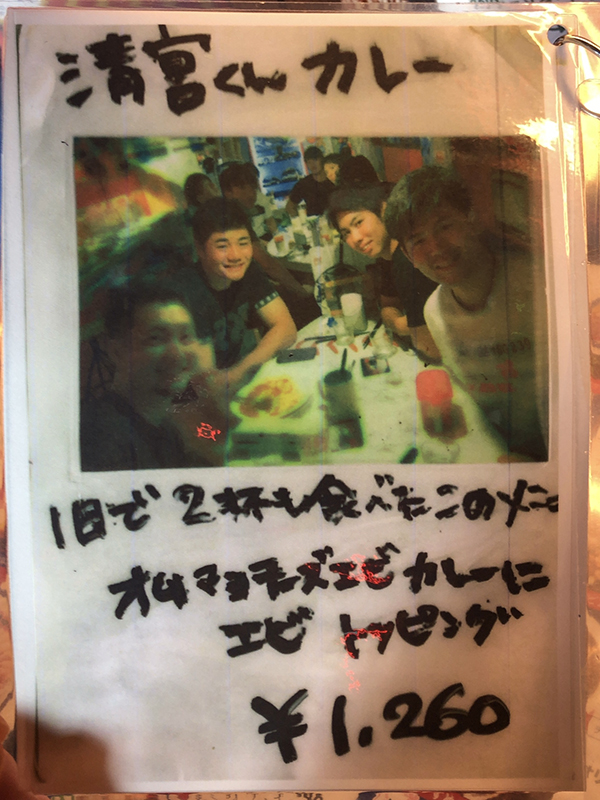 清宮くんカレー
1日で2杯も食べたこのメニュー
オムマヨチーズエビカレーに
エビトッピング
¥1,260